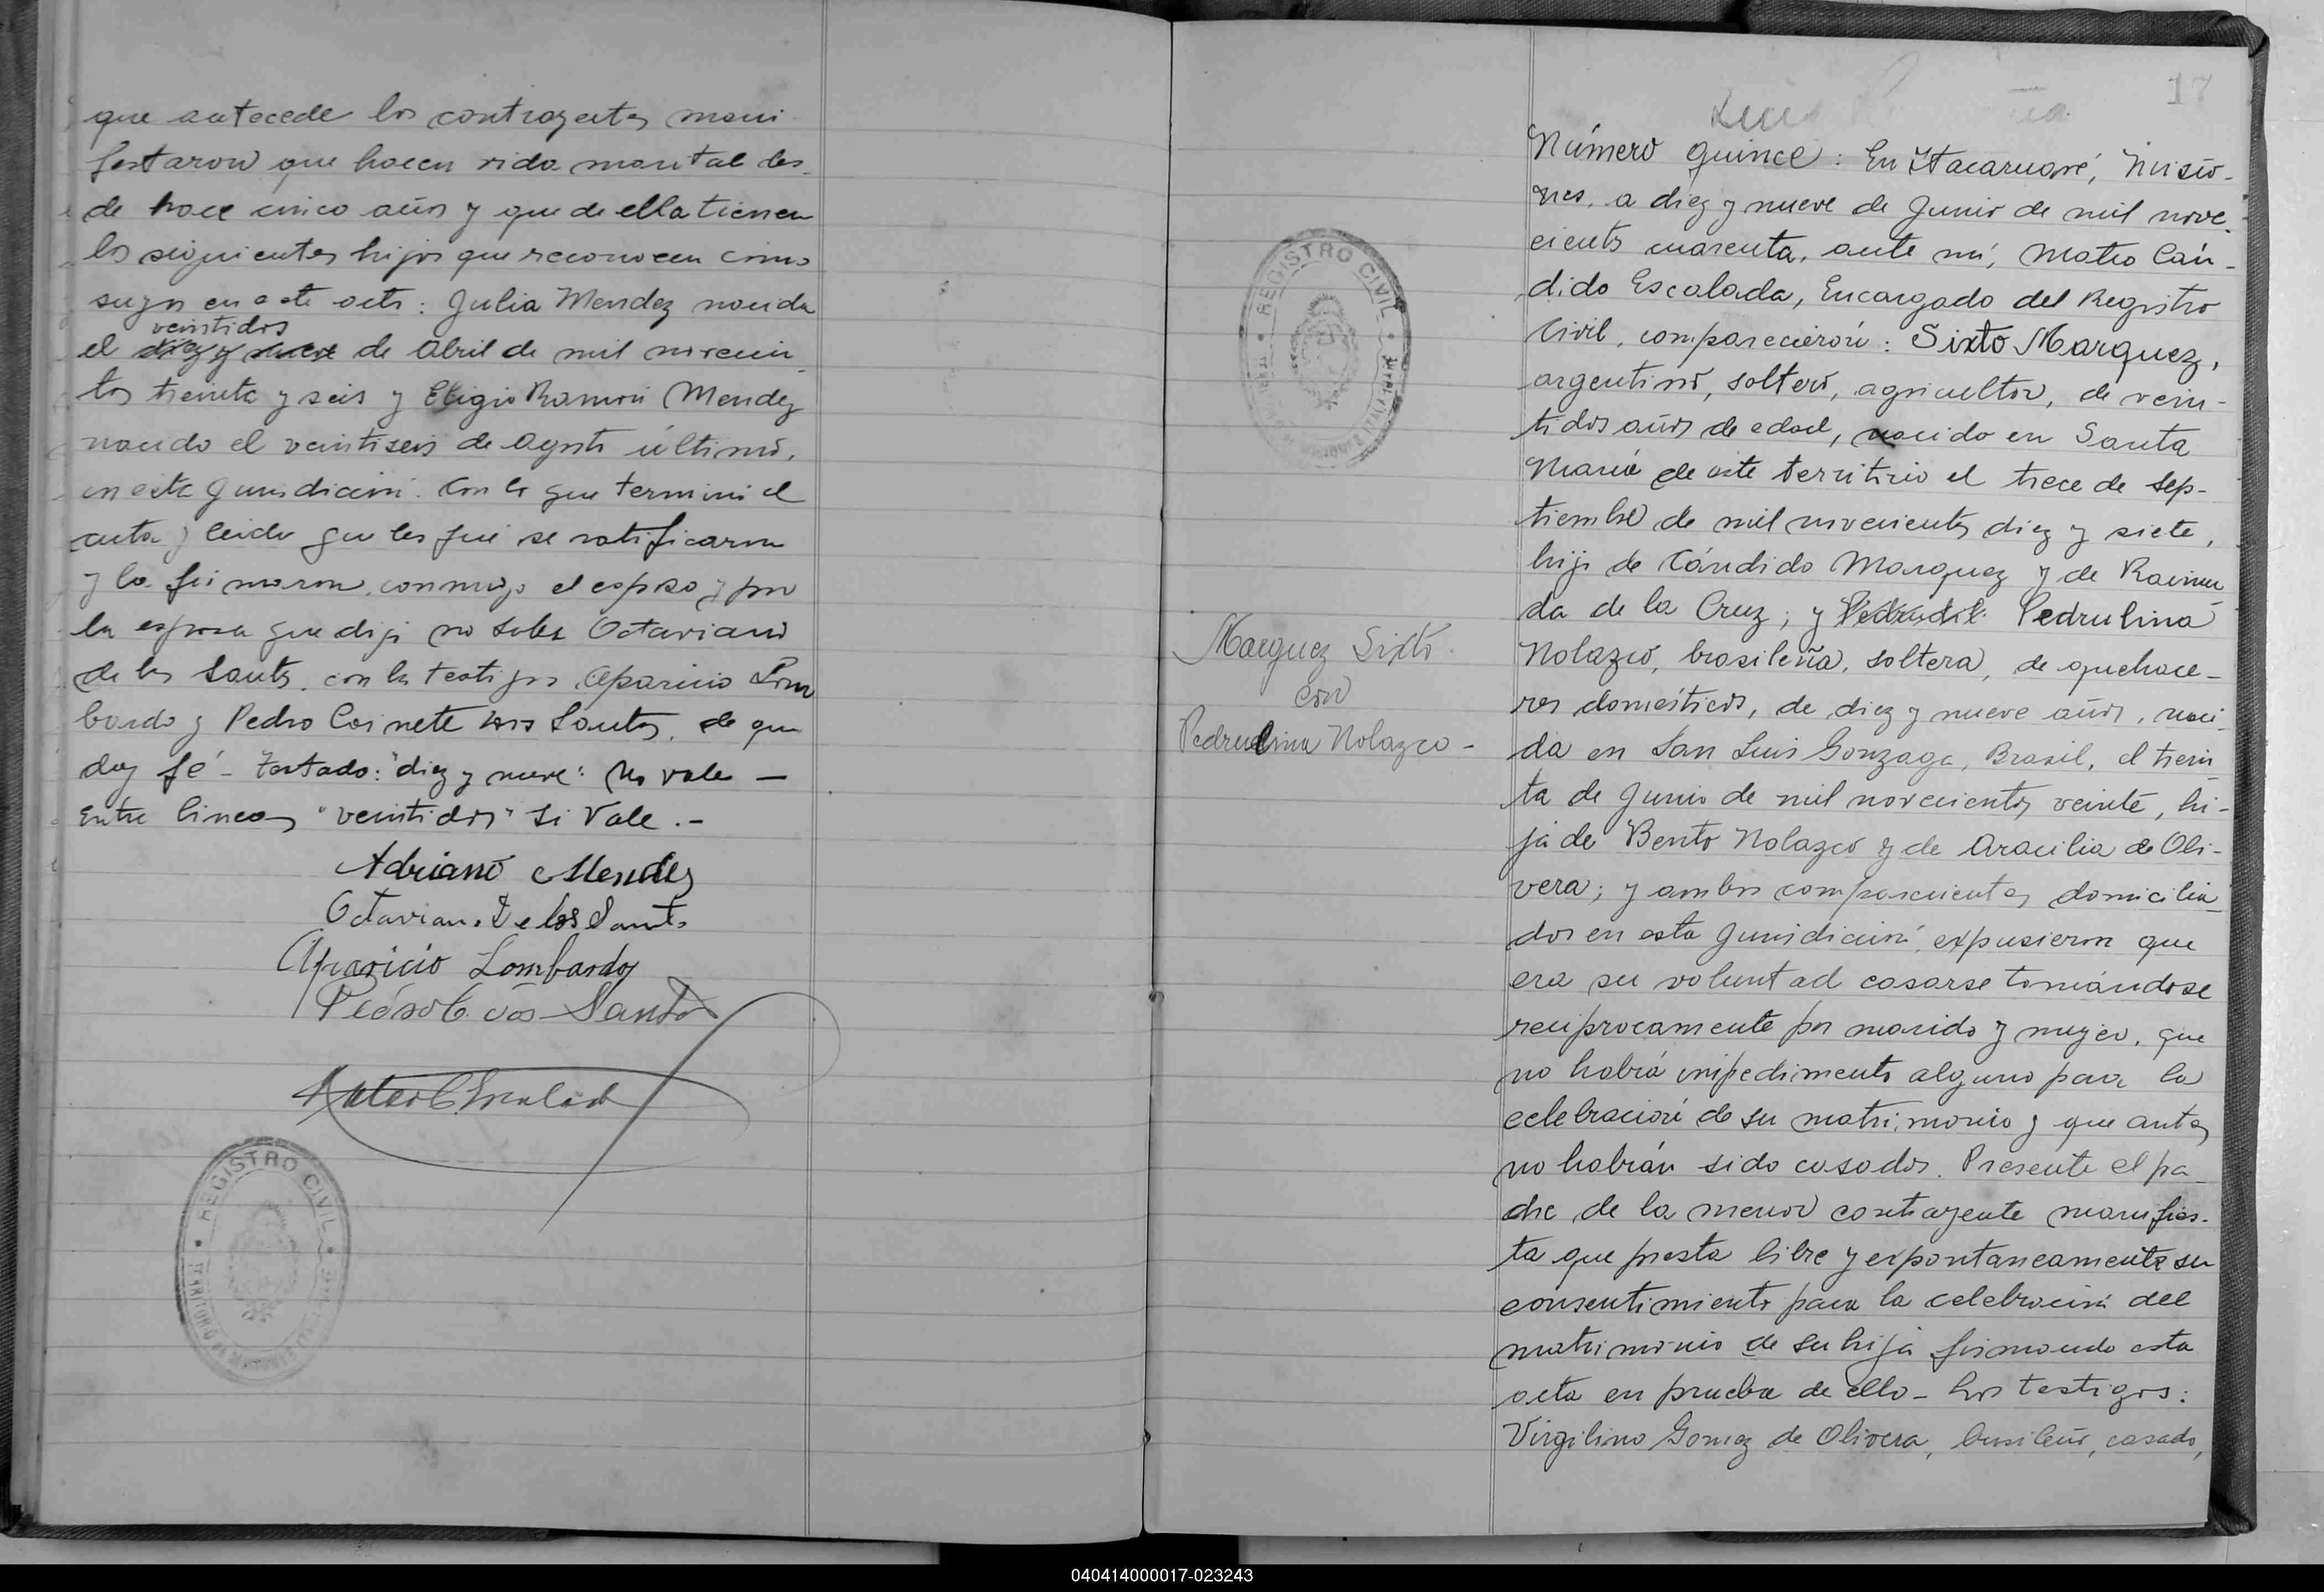 que antecede los contrayentes mani
festaron que hacen vida marital des-
de hace cinco años y que de ella tienen
los siguientes hijos que reconocen como
suyos en este acto: Julia Mendez nacida
veintidos
el diez y nueve de Abril de mil novecien
tos treinta y seis y Eligio Ramón Mendez
nacido el veintiseis de Agosto último,
en esta Jurisdicción. Con lo que terminó el
acta y leida que les fué se ratificaron
y la firmaron conmigo el esposo y por
la esposa que dijo no saber Octaviano
de los Santos, con los testigos Aparicio Lom
bardo y Pedro Cornete dos Santos, de que
doy fé - Testado: "diez y nueve": No vale —
Entre lineas "veintidos" Si Vale.-
Adriano Mendez
Octaviano De los Santos
Aparicio Lombardo
Pedro C. dos Santos
Mateo C. Escalada
REGISTRO CIVIL
17
Número quince: En Itacaruaré, Misio-
nes, a diez y nueve de Junio de mil nove-
cientos cuarenta, ante mí, Mateo Cán-
dido Escalada, Encargado del Registro
Civil, comparecierón: Sixto Marquez,
argentino, soltero, agricultor, de vein-
tidos años de edad, nacido en Santa
María de este territorio el trece de Sep-
tiembre de mil novecientos diez y siete,
hijo de Cándido Marquez y de Raimun
da de la Cruz; y Pedrulina
Nolazco, brasileña, soltera, de quehace-
res domésticos, de diez y nueve años, naci
da en San Luis Gonzaga, Brasil, el trein
ta de Junio de mil novecientos veinte, hi-
ja de Bento Nolazco y de Aracilia de Oli-
vera; y ambos comparecientes domicilia
dos en esta Jurisdicción, expusieron que
era su voluntad casarse tomándose
reciprocamente por marido y mujer, que
no habrá impedimento alguno para la
celebración de su matrimonio y que antes
no habrán sido casados. Presente el pa-
dre de la menor contrayente manifies-
ta que presta libre y expontaneamente su
consentimiento para la celebración del
matrimonio de su hija firmando esta
acta en prueba de ello - Los testigos:
Virgilino Gomez de Olivera, brasileño, casado,
REGISTRO CIVIL
Marquez Sixto
con
Pedrulina Nolazco -
040414000017-023243